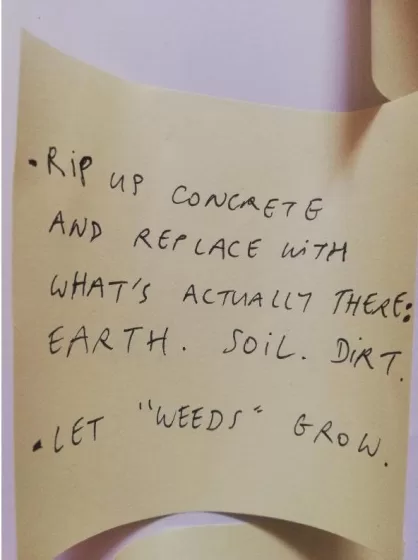 • RIP UP CONCRETE
AND REPLACE WITH
WHAT'S ACTUALLY THERE:
EARTH. SOIL. DIRT.
• LET "WEEDS" GROW.